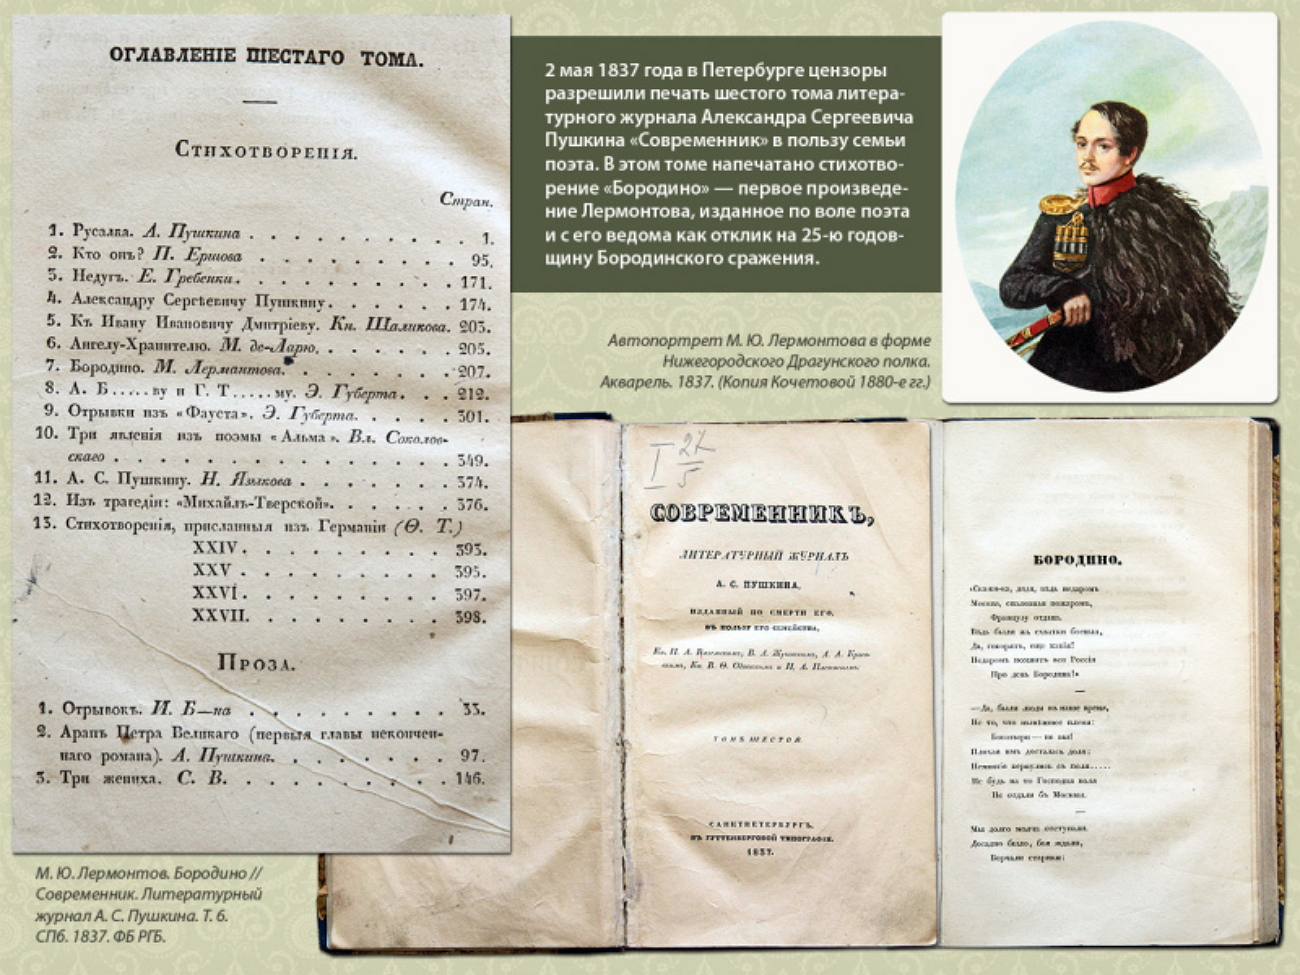 ОГЛАВЛЕНІЕ ШЕСТАГО ТОМА.
Стихотворенія.
Стран.
1. Русалка. А. Пушкина . . . . . . . . . . . 1.
2. Кто онъ? П. Ершова . . . . . . . . . . 95.
3. Недугъ. Е. Гребенки. . . . . . . . . . . 171.
4. Александру Сергѣевичу Пушкину. . . . . . . 174.
5. Къ Ивану Ивановичу Дмитріеву. Кн. Шаликова. 203.
6. Ангелу-Хранителю. М. де-Ларю. . . . . . . 205.
7. Бородино. М. Лермантова. . . . . . . . 207.
8. А. Б.....ву и Г. Т.....му. Э. Губерта. . . 212.
9. Отрывки изъ «Фауста». Э. Губерта. . . . . 301.
10. Три явленія изъ поэмы «Альма». Вл. Соколов-
скаго . . . . . . . . . . . . . . . . 349.
11. А. С. Пушкину. Н. Языкова . . . . . . . 374.
12. Изъ трагедіи: «Михаилъ-Тверской». . . . . . 376.
13. Стихотворенія, присланныя изъ Германіи (Ѳ. Т.)
XXIV. . . . . . . . . 393.
XXV . . . . . . . . . 395.
XXVI. . . . . . . . . 397.
XXVII. . . . . . . . . 398.
Проза.
1. Отрывокъ. И. Б—на . . . . . . . . . 33.
2. Арапъ Петра Великаго (первыя главы некончен-
наго романа). А. Пушкина. . . . . . . 97.
3. Три жениха. С. В. . . . . . . . . . 146.
2 мая 1837 года в Петербурге цензоры
разрешили печать шестого тома литера-
турного журнала Александра Сергеевича
Пушкина «Современник» в пользу семьи
поэта. В этом томе напечатано стихотво-
рение «Бородино» — первое произведе-
ние Лермонтова, изданное по воле поэта
и с его ведома как отклик на 25-ю годов-
щину Бородинского сражения.
Автопортрет М. Ю. Лермонтова в форме
Нижегородского Драгунского полка.
Акварель. 1837. (Копия Кочетовой 1880-е гг.)
I 27
5
СОВРЕМЕННИКЪ,
ЛИТЕРАТУРНЫЙ ЖУРНАЛЪ
А. С. ПУШКИНА,
ИЗДАННЫЙ ПО СМЕРТИ ЕГО,
ВЪ ПОЛЬЗУ ЕГО СЕМЕЙСТВА,
Кн. П. А. Вяземскимъ, В. А. Жуковскимъ, А. А. Краев-
скимъ, Кн. В. Ѳ. Одоевскимъ и П. А. Плетневымъ
ТОМЪ ШЕСТОЙ
САНКТПЕТЕРБУРГЪ,
ВЪ ГУТТЕНБЕРГОВОЙ ТИПОГРАФІИ.
1837.
БОРОДИНО.
«Скажи-ка, дядя, вѣдь недаромъ
Москва, спаленная пожаромъ,
Французу отдана.
Вѣдь были жъ схватки боевыя,
Да, говорятъ, еще какія!
Недаромъ помнитъ вся Россія
Про день Бородина!»
—
—Да, были люди въ наше время,
Не то, что нынѣшнее племя:
Богатыри — не вы!
Плохая имъ досталась доля:
Немногіе вернулись съ поля.....
Не будь на то Господня воля
Не отдали бъ Москвы.
—
Мы долго молча отступали.
Досадно было, боя ждали,
Ворчали старики:
М. Ю. Лермонтов. Бородино //
Современник. Литературный
журнал А. С. Пушкина. Т. 6.
СПб. 1837. ФБ РГБ.